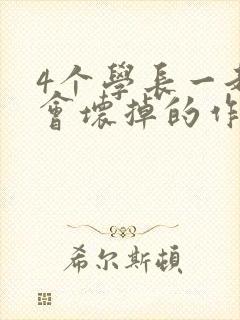 4个學長一
會壞掉的作
希尔斯頓